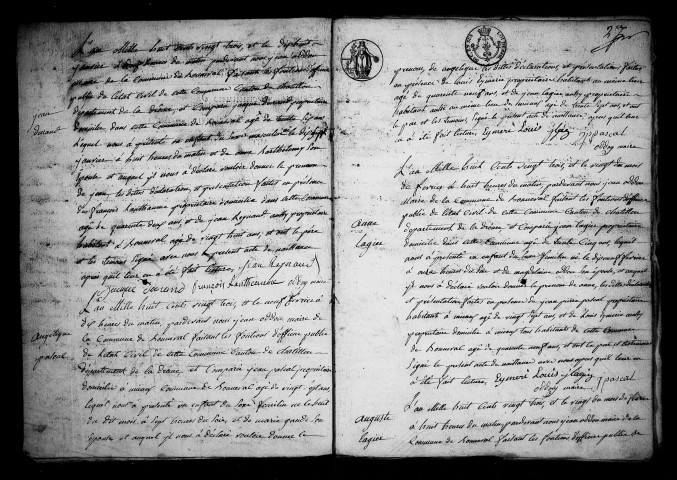 L'an Mille huit Cents vingt trois, et le dixhuit
janvier à dix heures du matin pardevant nous jean oddon
maire de la Commune de Bonneval faisant les fontions d'officier
public de l'état Civil de cette Commune Canton de chatillon
département de la drome, est Comparu jacques durand propriétaire
domicilié dans cette Commune de Bonneval agé de trente
lequel nous a présenté un enfant du sexe masculin le dixsept
janvier à huit heures du matin et de anne Barthelemy son
épouse et auquel il nous a déclaré vouloir donner le prenom
de jean les dites déclaration, et présentation faites en présence
de françois Barthelemy propriétaire domicilié dans cette Commune
agé de quarante deux ans, et de jean Reynaud propriétaire
habitant à Bonneval agé de vingt huit ans, et ont le père
et les témoins signé avec nous le présent acte de naissance
après quil leur en a été fait lecture, jean Reynaud
jean
durand
jacques durand françois Barthelemy oddon maire
L'an Mille huit Cents vingt trois, et le neuf fevrier à
dix heures du matin, pardevant nous jean oddon maire de
la Commune de Bonneval faisant les fontions d'officier public
de l'état Civil de cette Commune Canton de chatillon
département de la drome est Comparu jean pascal propriétaire
domicilié à miany Commune de Bonneval agé de vingt sept ans,
lequel nous a présenté un enfant du sexe féminin né le huit
du dit mois, à sept heures du soir, et de marie gaude son
épouse et auquel il nous a déclaré vouloir donner le
angelique
pascal
27
prenom de angelique les dites déclarations, et présentation faites
en présence de louis Eymerie propriétaire habitant au même lieu
agé de quarante neuf ans, et de jean lagier propriétaire
habitant au lieu de miany agé de trente ans, et ont
le père et les témoins, signé le présent acte de naissance après quil leur
en a été fait lecture, Eymeri Louis jlagier jpascal
oddon maire
L'an Mille huit Cents vingt trois, et le vingt du mois
de fevrier à huit heures du matin, pardevant nous jean oddon
Maire de la Commune de Bonneval faisant les fontions d'officier
public de l'état Civil de cette Commune Canton de chatillon
département de la drome, est Comparu jean lagier propriétaire
domicilié dans cette Commune agé de trente cinq ans, lequel
nous a présenté un enfant du sexe féminin le dixneuf fevrier
à onze heures du soir et de magdelaine oddon son épouse, et auquel
il nous a déclaré vouloir donner le prenom de anne, les dites déclaration
et présentation faites en présence de jean pierre pascal propriétaire
habitant à miany agé de vingt sept ans, et de Louis Eymeri
propriétaire domicilié à miany tous habitants de cette Commune
de Bonneval agé de quarante neuf ans, et ont le père et témoins
signé le présent acte de naissance avec nous après quil leur en
a été fait lecture, Eymeri Louis jlagier
oddon maire jpascal
anne
lagier
L'an Mille huit Cents vingt trois, et le vingt du mois de fevrier
à huit heures du matin pardevant nous jean oddon maire de la
Commune de Bonneval faisant les fontions d'officier public de
auguste
lagier